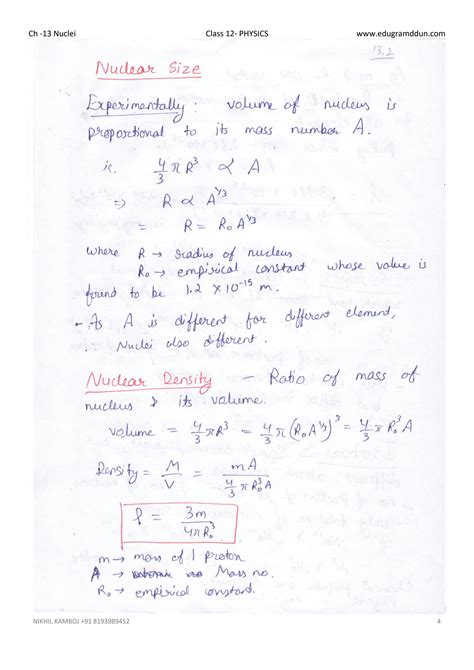 Ch -13 Nuclei Class 12- PHYSICS www.edugramddun.com
13.2
Nuclear Size
Experimentally : volume of nucleus is
proportional to its mass number A.
ie. 4/3 π R³ ∝ A
⇒ R ∝ A^1/3
= R = R₀ A^1/3
where R → radius of nucleus
R₀ → empirical constant whose value is
found to be 1.2 × 10^-15 m.
- As A is different for different element,
Nuclei also different.
Nuclear Density - Ratio of mass of
nucleus & its volume.
volume = 4/3 πR³ = 4/3 π (R₀ A^1/3)³ = 4/3 π R₀³ A
Density = M/V = mA / 4/3 π R₀³ A
ρ = 3m / 4π R₀³
m → mass of 1 proton
A → Mass no.
R₀ → empirical constant.
NIKHIL KAMBOJ +91 8193989452 4